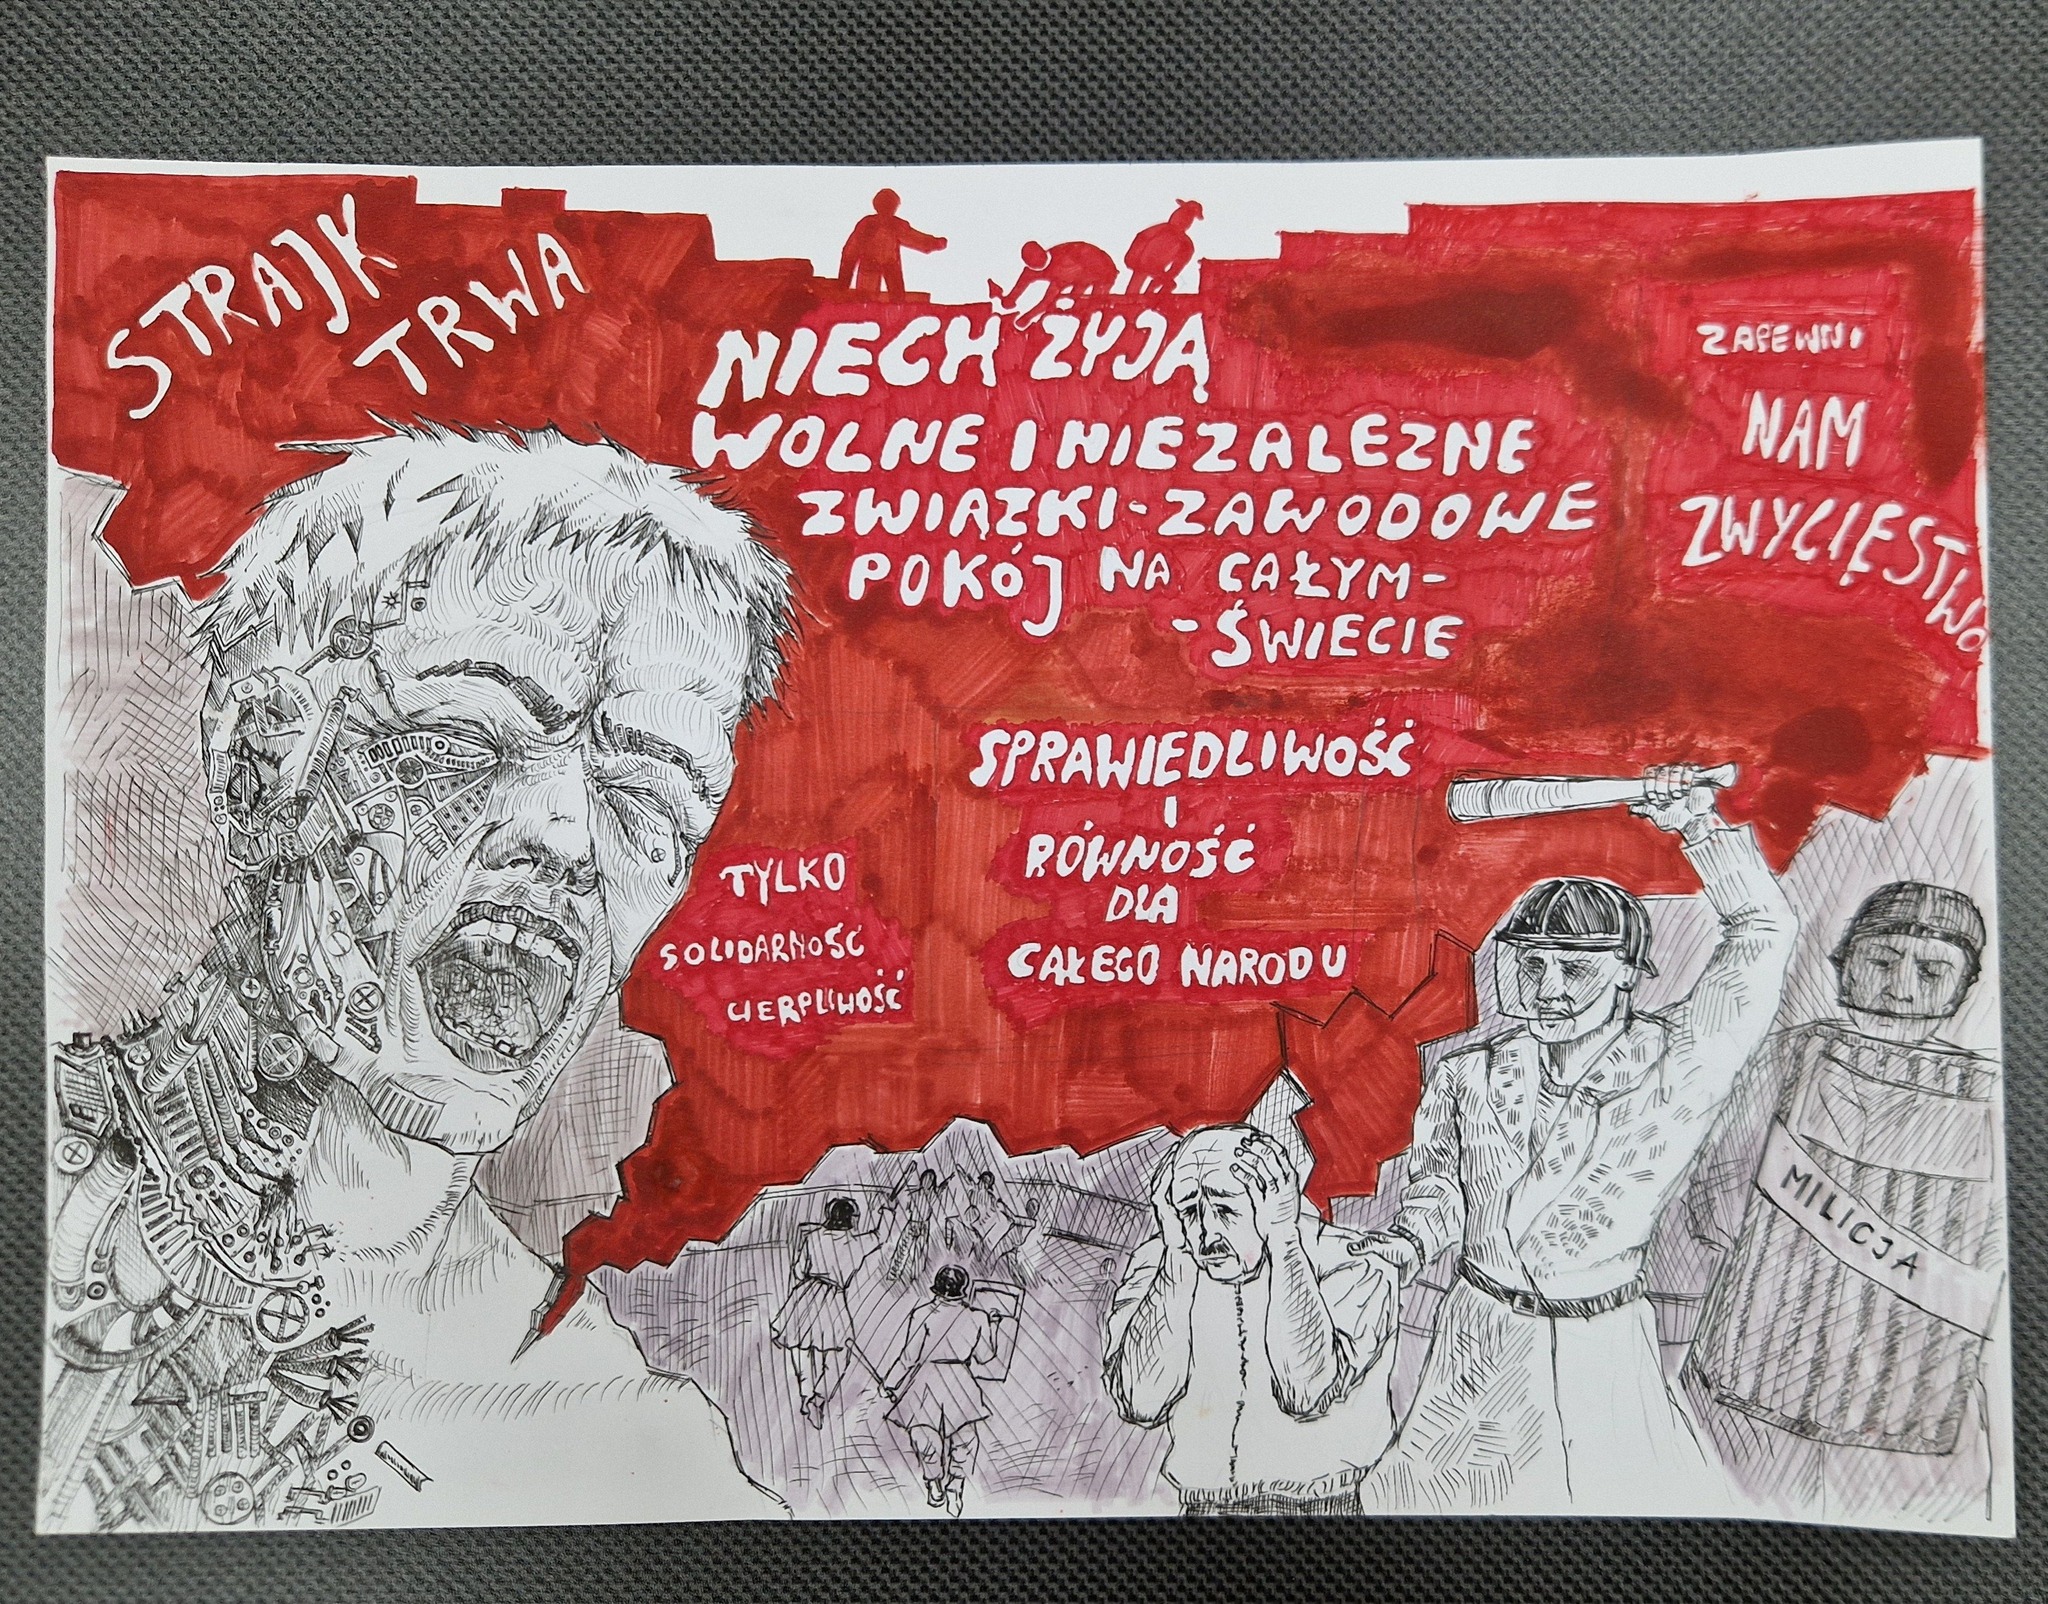 STRAJK
TRWA
NIECH ŻYJĄ
WOLNE I NIEZALEZNE
ZWIĄZKI-ZAWODOWE
POKÓJ NA CAŁYM-
-ŚWIECIE
ZAPEWNI
NAM
ZWYCIĘSTWO
SPRAWIEDLIWOŚĆ
I
RÓWNOŚĆ
DLA
CAŁEGO NARODU
TYLKO
SOLIDARNOŚĆ
CIERPLIWOŚĆ
MILICJA